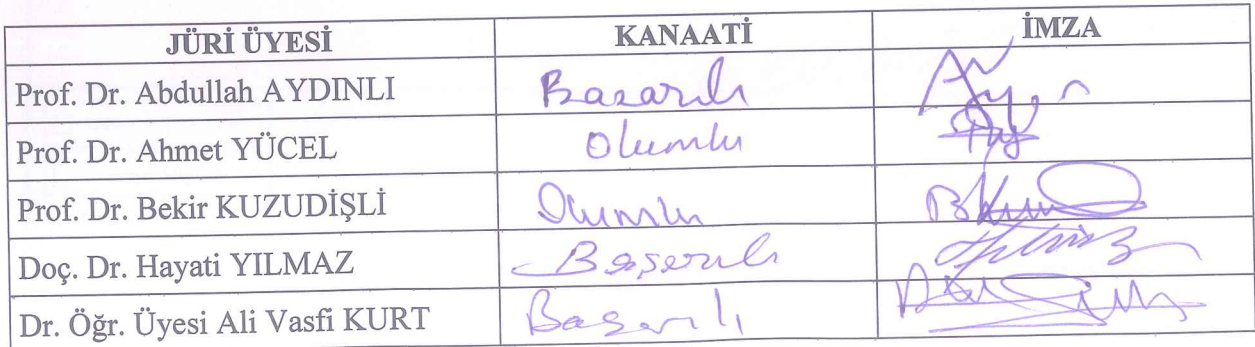 JÜRİ ÜYESİ KANAATİ İMZA
Prof. Dr. Abdullah AYDINLI Başarılı
Prof. Dr. Ahmet YÜCEL Olumlu
Prof. Dr. Bekir KUZUDİŞLİ Olumlu
Doç. Dr. Hayati YILMAZ Başarılı
Dr. Öğr. Üyesi Ali Vasfi KURT Başarılı